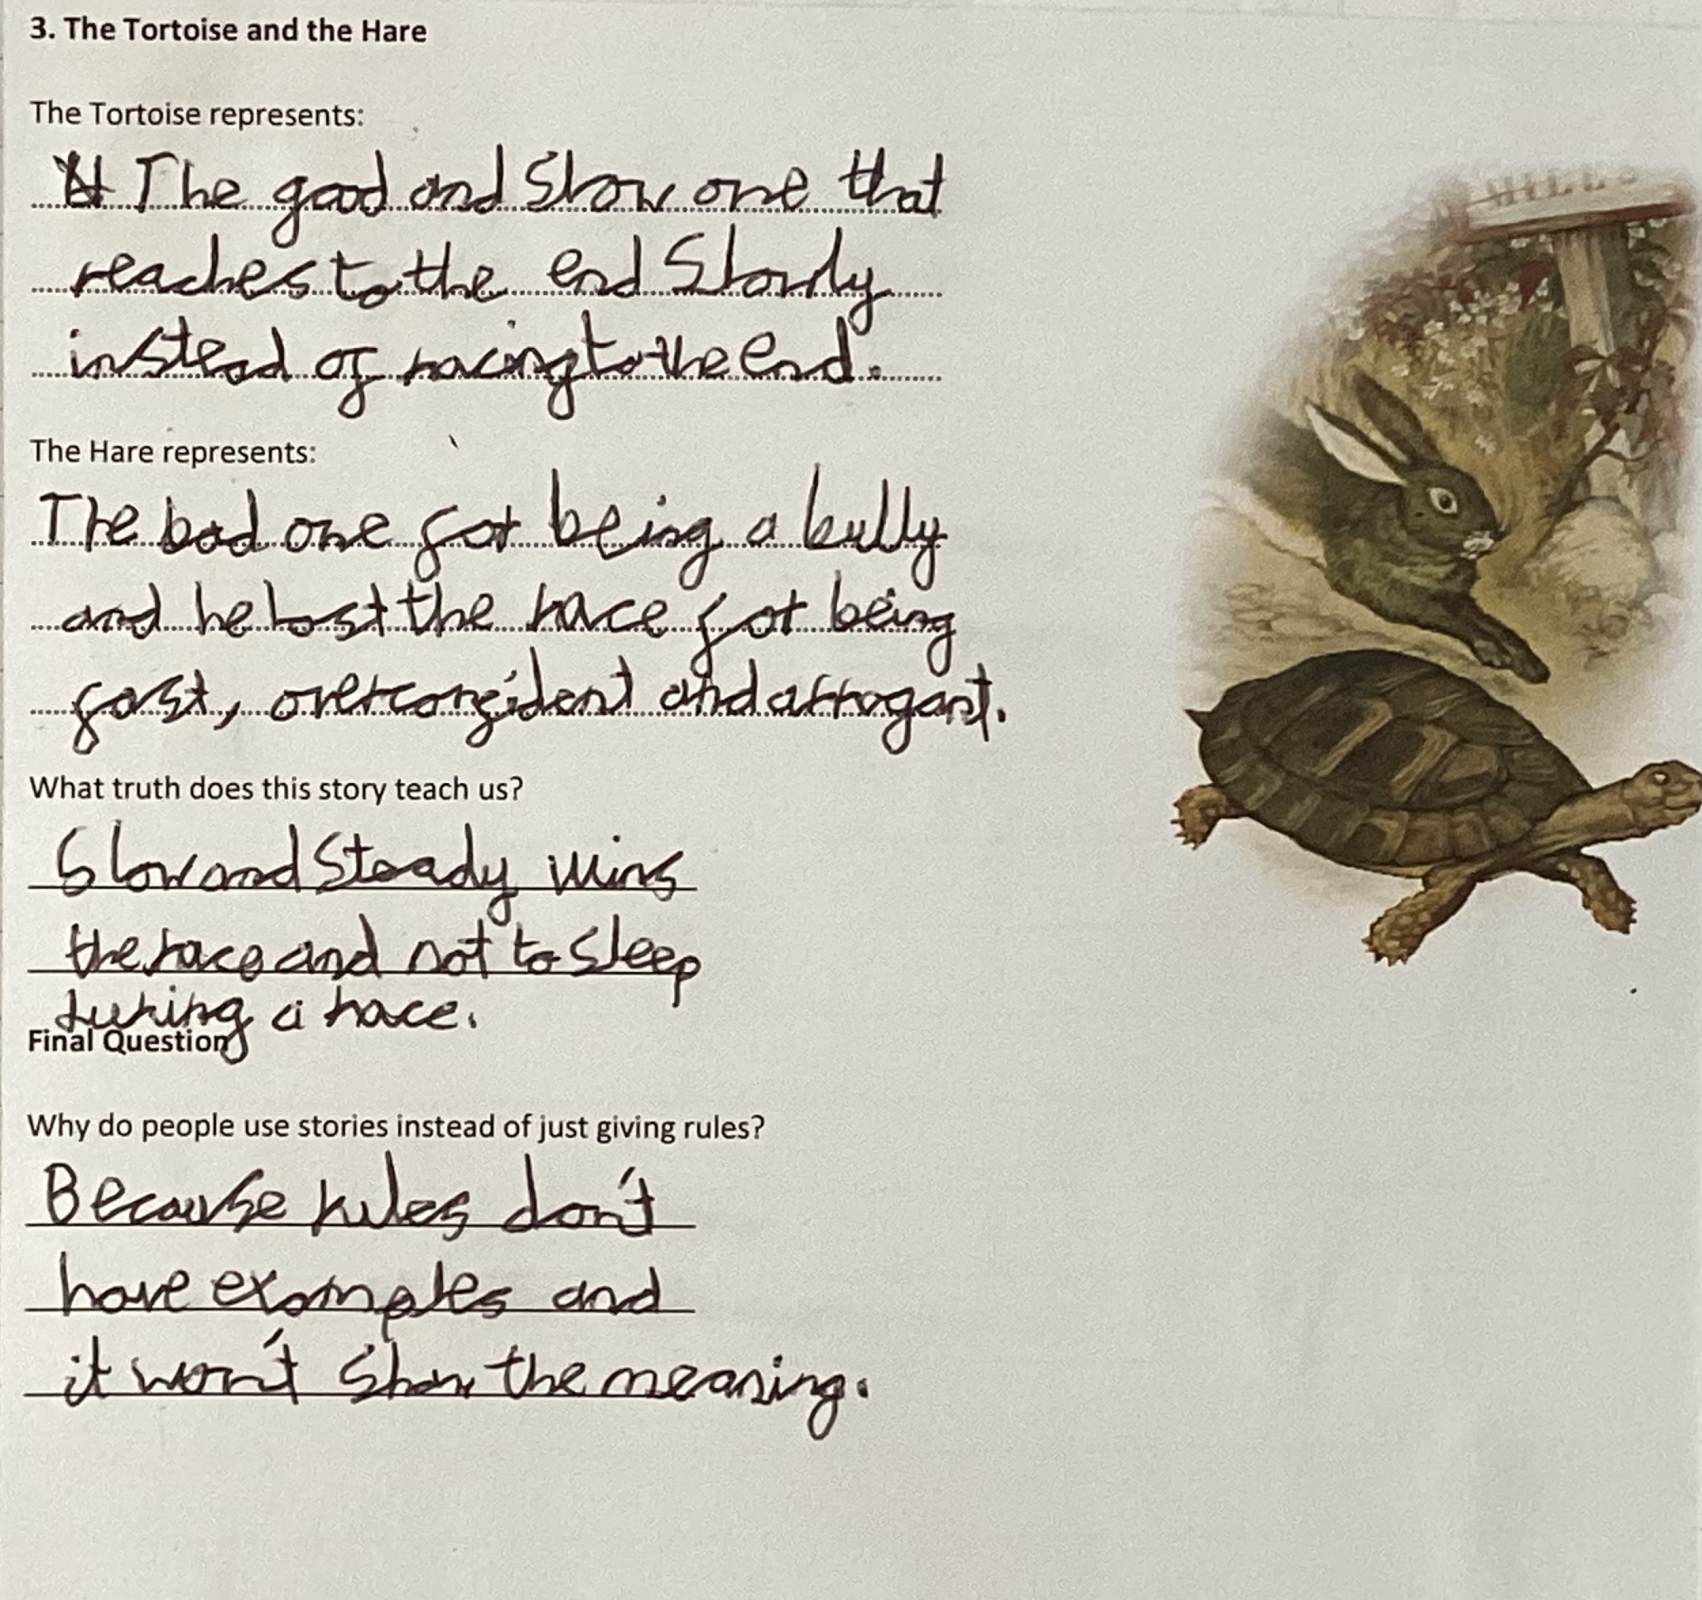 3. The Tortoise and the Hare
The Tortoise represents:
The good and Slow one that
reaches to the end Slowly
instead of racing to the end.
The Hare represents:
The bad one for being a bully
and he lost the race for being
fast, overconfident and arrogant.
What truth does this story teach us?
Slow and Steady wins
the race and not to sleep
during a race.
Final Question
Why do people use stories instead of just giving rules?
Because rules don't
have examples and
it won't show the meaning.